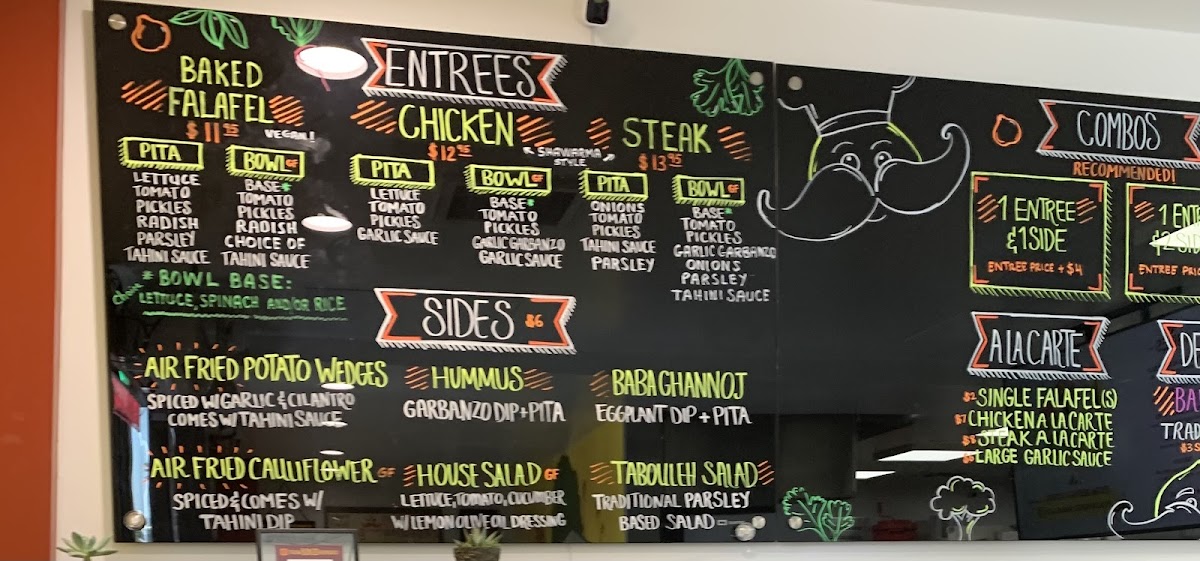 ENTREES
BAKED
FALAFEL
$11.95
VEGAN!
PITA
LETTUCE
TOMATO
PICKLES
RADISH
PARSLEY
TAHINI SAUCE
BOWL GF
BASE*
TOMATO
PICKLES
RADISH
CHOICE OF
TAHINI SAUCE
* BOWL BASE:
LETTUCE, SPINACH AND/OR RICE
CHICKEN
$12.95
SHAWARMA
STYLE
PITA
LETTUCE
TOMATO
PICKLES
GARLIC SAUCE
BOWL GF
BASE*
TOMATO
PICKLES
GARLIC GARBANZO
GARLIC SAUCE
STEAK
$13.95
PITA
ONIONS
TOMATO
PICKLES
TAHINI SAUCE
PARSLEY
BOWL GF
BASE*
TOMATO
PICKLES
GARLIC GARBANZO
ONIONS
PARSLEY
TAHINI SAUCE
SIDES $6
AIR FRIED POTATO WEDGES
SPICED W/GARLIC & CILANTRO
COMES W/TAHINI SAUCE
HUMMUS
GARBANZO DIP + PITA
BABAGHANNOJ
EGGPLANT DIP + PITA
AIR FRIED CAULIFLOWER GF
SPICED & COMES W/
TAHINI DIP
HOUSE SALAD GF
LETTUCE, TOMATO, CUCUMBER
W/LEMON OLIVE OIL DRESSING
TABOULEH SALAD
TRADITIONAL PARSLEY
BASED SALAD
COMBOS
RECOMMENDED!
1 ENTREE
& 1 SIDE
ENTREE PRICE + $4
1 ENT
ENTREE PRIC
A LA CARTE
$2 SINGLE FALAFEL(S)
$7 CHICKEN A LA CARTE
$8 STEAK A LA CARTE
LARGE GARLIC SAUCE
DE
BA
TRAD